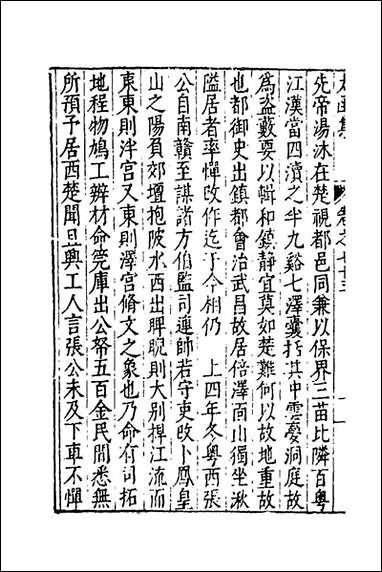 太函集　卷之七十三
先帝湯沐在楚視都邑同兼以保界三苗比隣百粵
江漢當四瀆之半九谿七澤囊括其中雲夢洞庭故
為盗藪要以輯和鎮靜宜莫如楚難何以故地重故
也都御史出鎮都會治武昌故居倍澤面山獨坐湫
隘居者率憚改作迄于今相仍　上四年冬粵西張
公自南贛至謀諸方伯監司連師若守吏改卜鳳皇
山之陽負郊壇抱陂水西出睥睨則大别捍江流而
東東則泮宫又東則澤宫脩文之象也乃命有司拓
地程物鳩工辨材命筦庫出公帑五百金民間悉無
所預予居西楚聞且興工人言張公未及下車不憚